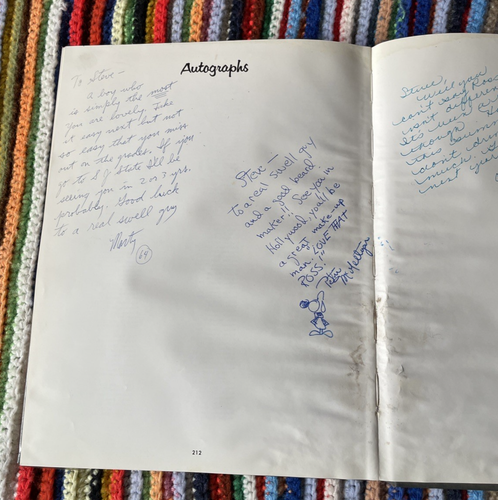 Autographs
To Steve –
a boy who
is simply the most
You are lovely. Take
it easy next but not
so easy that you miss
out on the grades. If you
go to S J State I'll be
seeing you in 2 yrs.
probably. Good luck
to a real swell guy
Marty
65
Steve –
To a real swell guy
and a good beard
maker!! See you in
Hollywood, you'll be
a great make-up
man. LOVE THAT
POSS!"
Peter
Steve,
Well you
can't say
isn't
It's been a
enough
this
won't
much
next
212